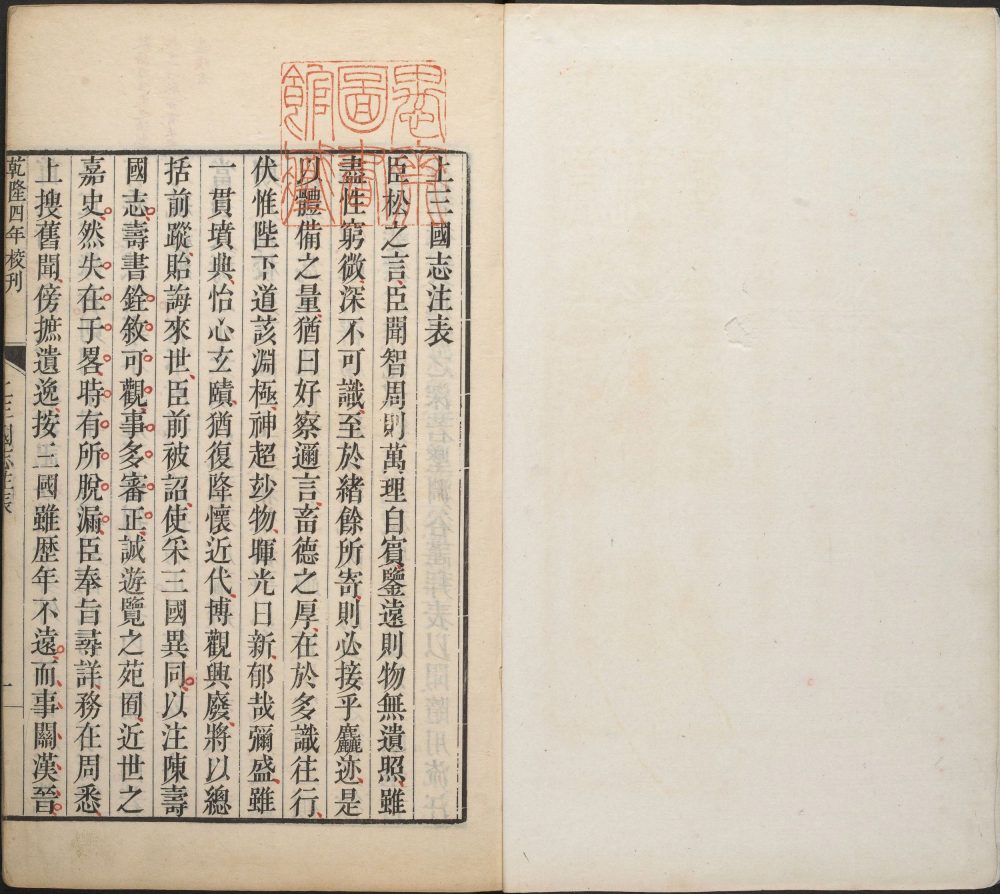 上三國志注表
臣松之言臣聞智周則萬理自賓鑒遠則物無遺照雖
盡性窮微深不可識至於緒餘所寄則必接乎麤迹是
以體備之量猶曰好察邇言畜德之厚在於多識往行
伏惟陛下道該淵極神超玅物暉光日新郁哉彌盛雖
一貫墳典怡心玄賾猶復降懷近代博觀興廢將以總
括前蹤貽誨來世臣前被詔使采三國異同以注陳壽
國志壽書銓敘可觀事多審正誠遊覽之苑囿近世之
嘉史然失在于畧時有所脫漏臣奉旨尋詳務在周悉
上搜舊聞傍摭遺逸按三國雖歷年不遠而事關漢晉
乾隆四年校刊
上三國志注表
一
圖書
館藏